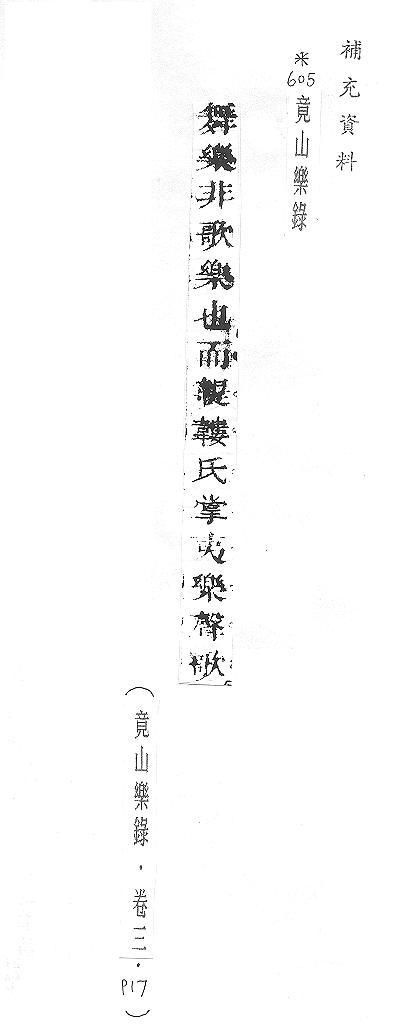 補充資料
*605竟山樂錄
舞樂非歌樂也而鞮鞻氏掌夷樂聲歌
(竟山樂錄．卷三．P17)